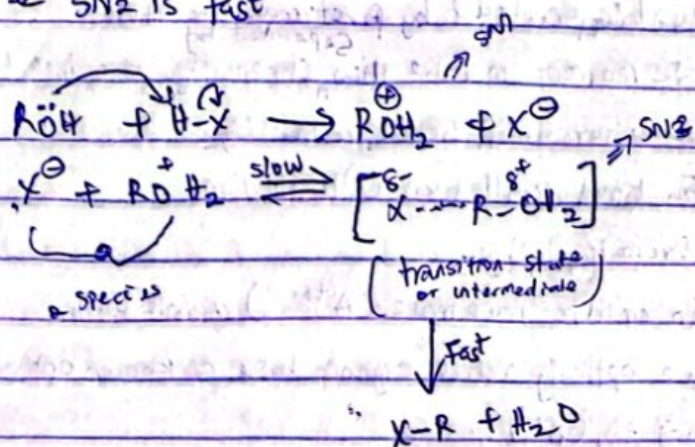 SN2 is fast
SN1
RÖH + H-X → R⊕OH₂ + X⊖
X⊖ + RO⁺H₂ slow ⇌ [δ- X----R-OH₂ δ+] ⇒ SN2
2 species
(transition state
or intermediate)
↓ Fast
X-R + H₂O